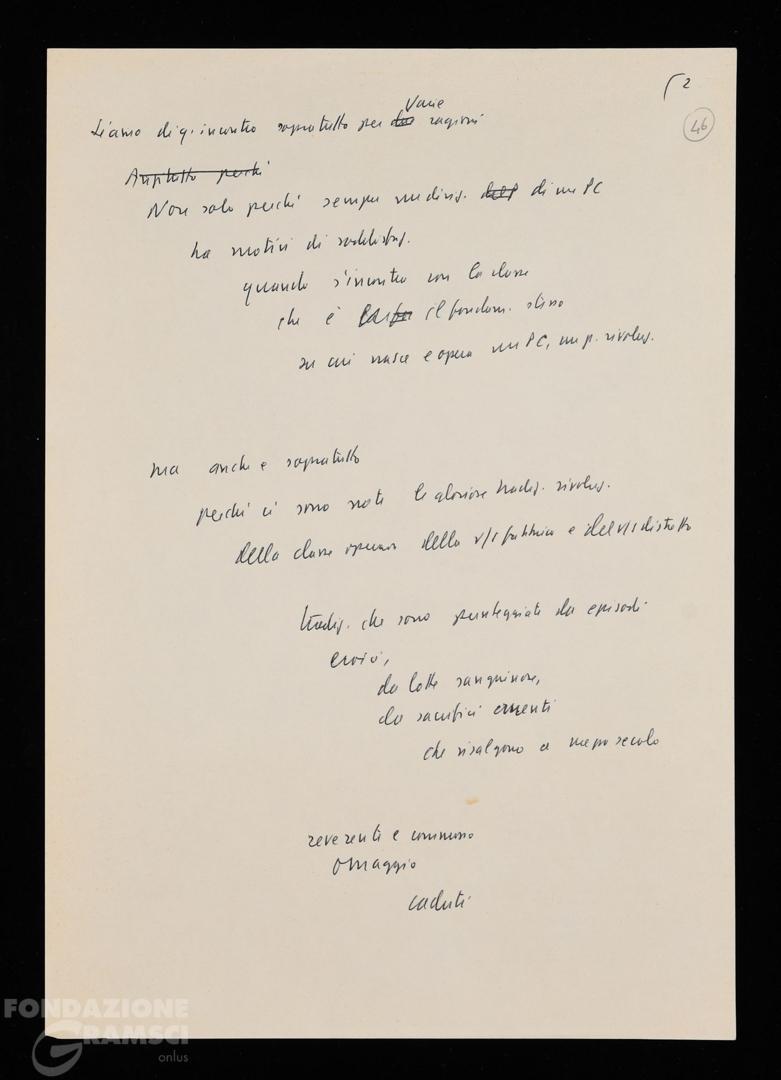 2
46
Siamo di q. incontro sopratutto per varie ragioni
Non solo perché sempre un dirig. di un PC
ha motivi di soddisfaz.
quando s'incontra con la classe
che è il fondam. stesso
su cui nasce e opera un PC, un p. rivoluz.
ma anche e sopratutto
perché ci sono note le gloriose tradiz. rivoluz.
della classe operaia della v/s fabbrica e del v/s distretto
tradiz. che sono punteggiate da episodi
eroici,
da lotte sanguinose,
da sacrifici cruenti
che risalgono a mezzo secolo
reverenti e commosso
omaggio
caduti
FONDAZIONE
GRAMSCI
onlus